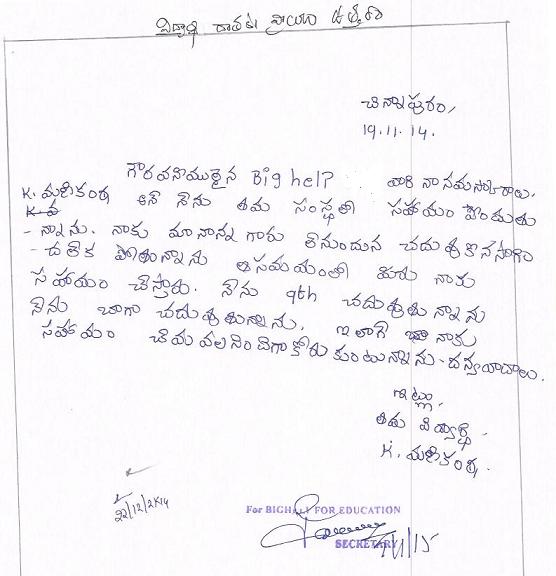 విద్యార్థి రాతకు స్రాయం ఉత్తరం
చిన్నాపురం,
19.11.14.
గౌరవనీయులైన Big help వారి నా నమస్కారాలు.
K. మణికంఠ అనే నేను తమ సంస్థతో సహాయం పొందుతు
- న్నాను. నాకు మా నాన్న గారు లేనందున చదువుకొనసాగిం
- చలేక పోతున్నాను ఆసమయంలో మీరు నాకు
సహాయం చేస్తారు. నేను 9th చదువుతున్నాను
నేను బాగా చదువుతున్నాను. ఇలాగే నాకు
సహాయం చేయవలసిందిగా కోరుకుంటున్నాను - దన్యవాదాలు.
ఇట్లు,
తమ విద్యార్థి,
K. మణికంఠ.
22/12/2K14
For BIGHELP FOR EDUCATION
SECRETARY